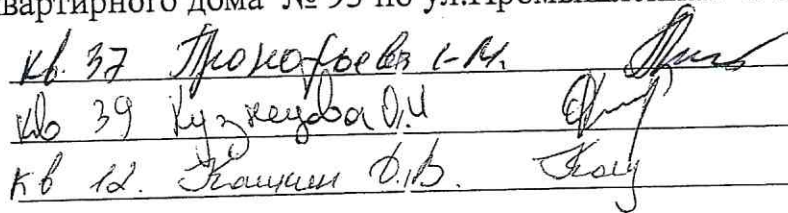 вартирного дома № 93 по ул.Промышленная
кв. 37 Прокофьева
кв 39 Кузнецова О.И
кв 12. Кашин Д.В.